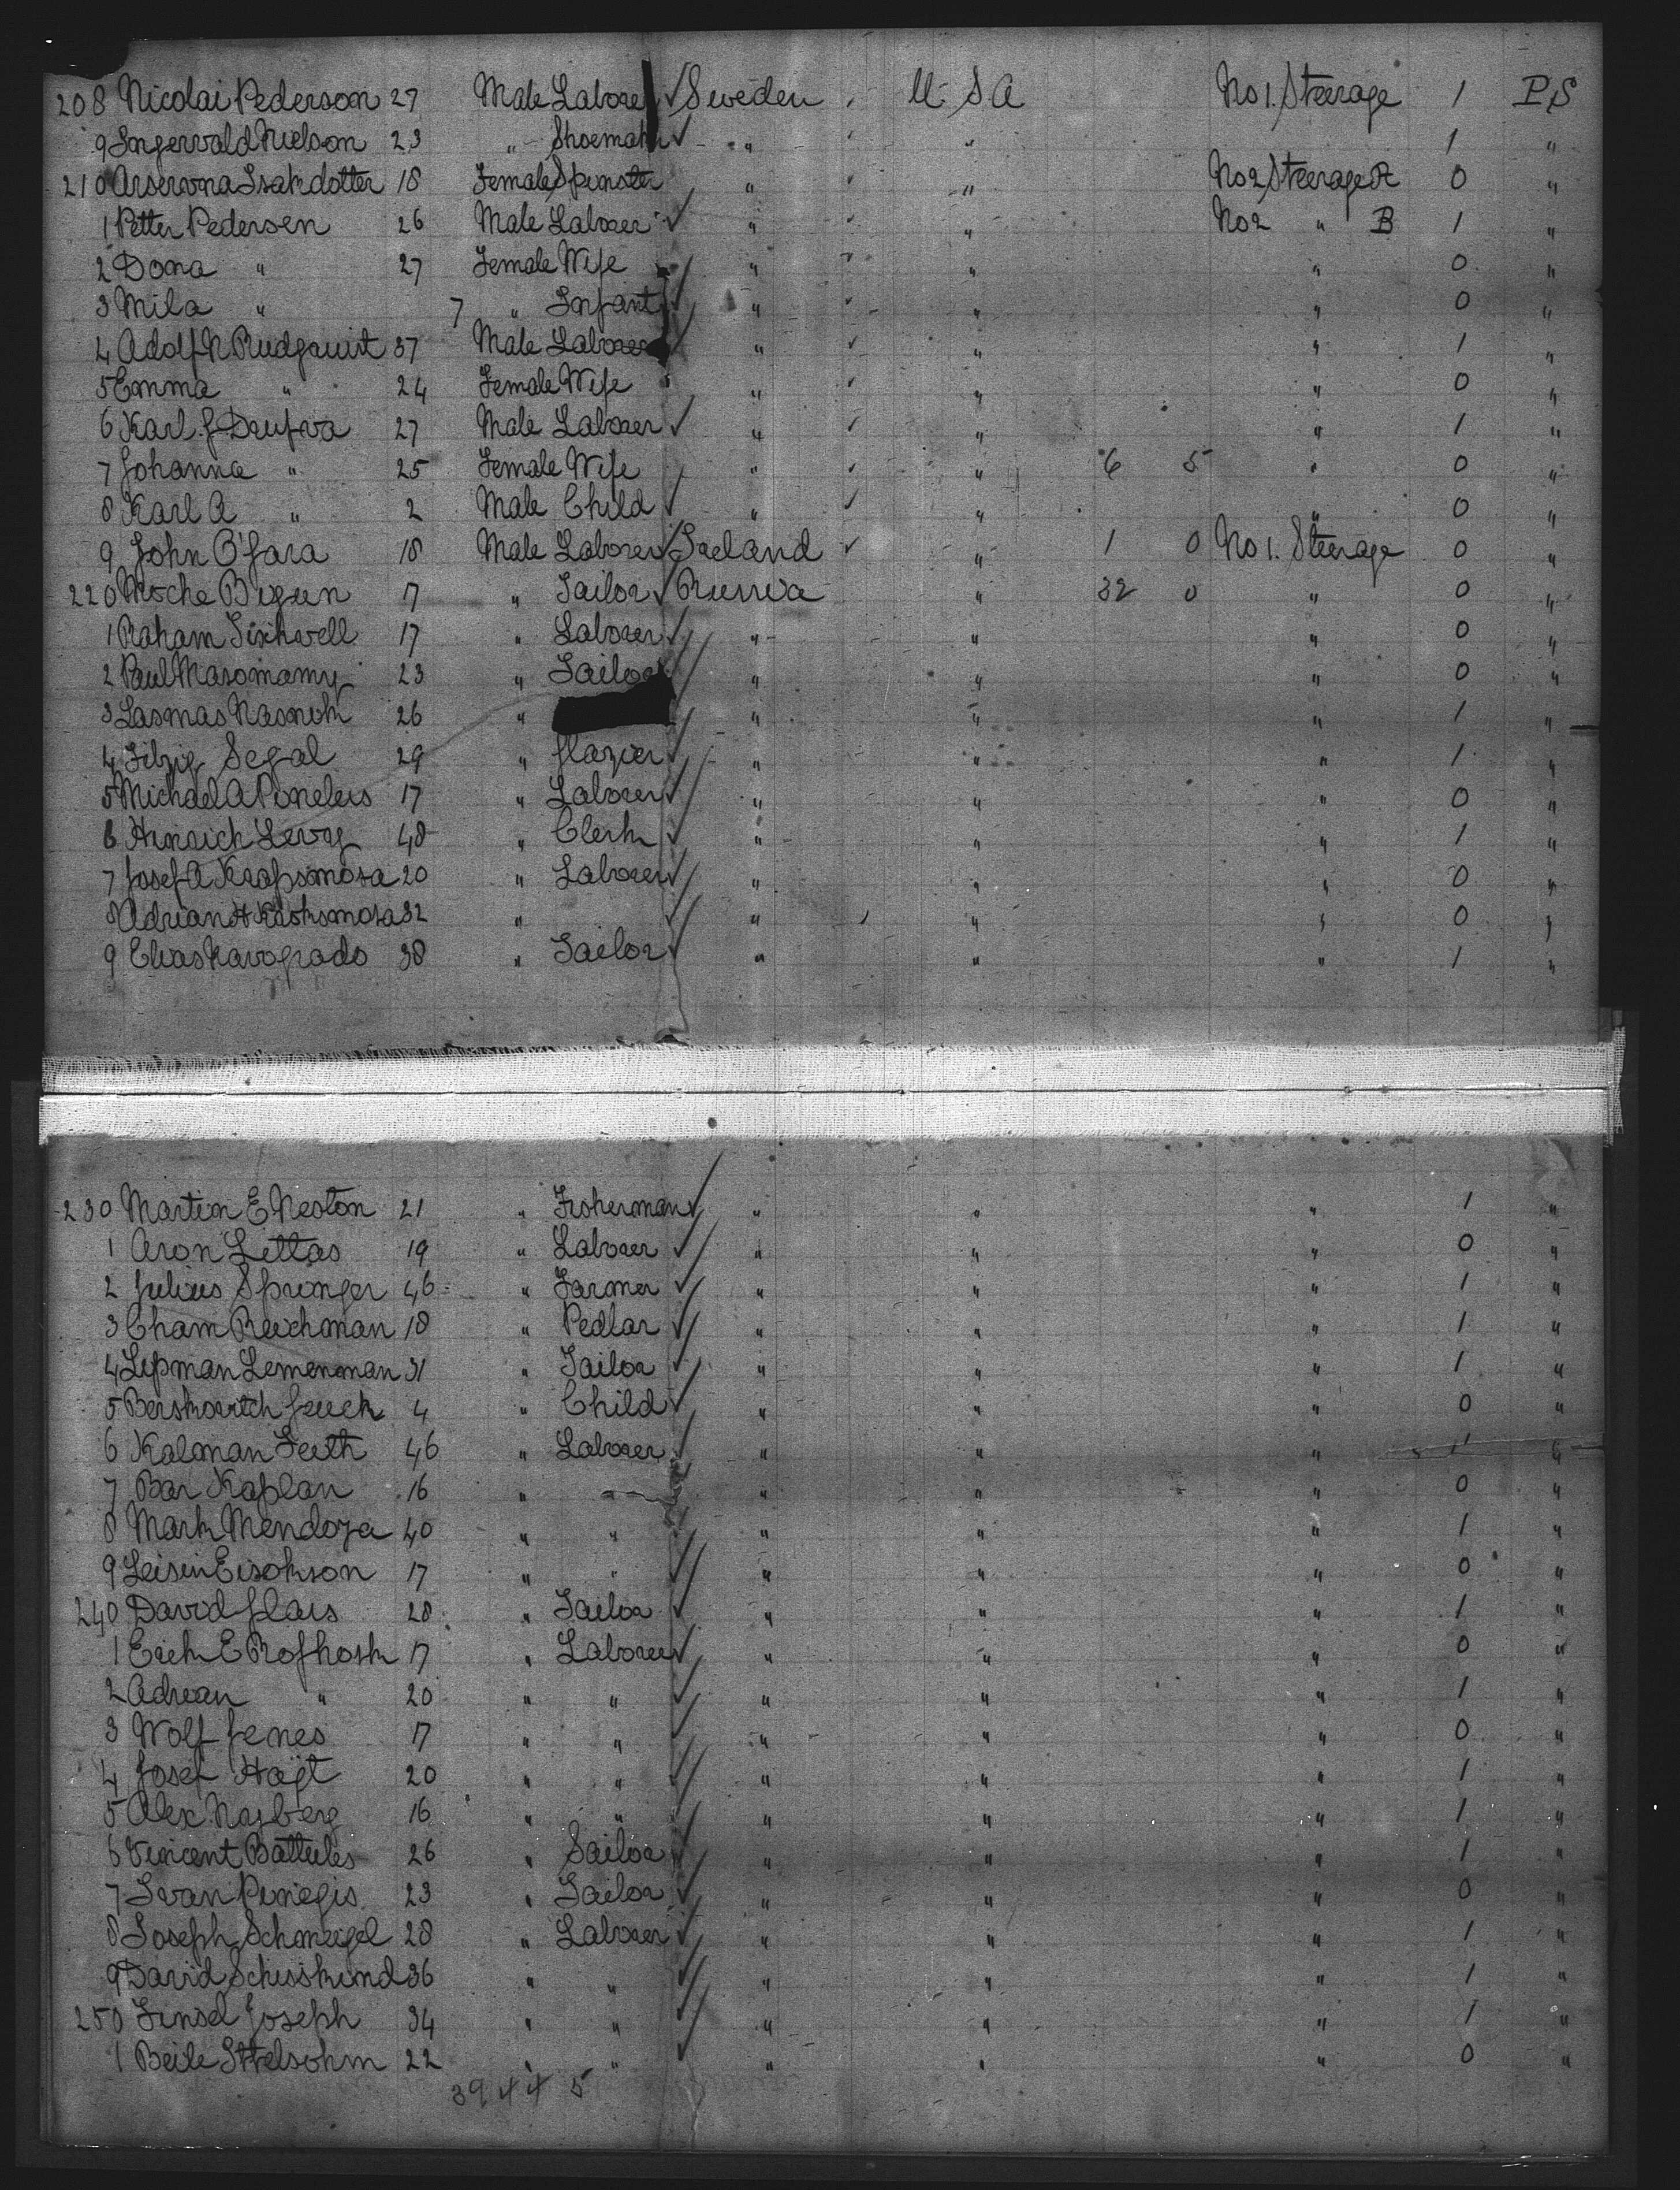 208 Nicolai Pederson 27 Male Laborer ✓ Sweden U.S.A No 1. Steerage 1 P.S
9 Ingervald Nielson 23 " Shoemaker ✓ " " 1 "
210 Isakdotter 18 Female Spinster " " No 2 Steerage A 0 "
1 Petter Pedersen 26 Male Laborer ✓ " " No 2 " B 1 "
2 Dona " 27 Female Wife " " " 0 "
3 Mila " 7 " Infant ✓ " " " 0 "
4 Adolf N Rudquist 37 Male Laborer ✓ " " " 1 "
5 Emma " 24 Female Wife " " " 0 "
6 Karl J 27 Male Laborer ✓ " " " 1 "
7 Johanna " 25 Female Wife " " 6 5 " 0 "
8 Karl A " 2 Male Child ✓ " " " 0 "
9 John O'Gara 18 Male Laborer ✓ Ireland " 1 0 No 1. Steerage 0 "
220 Moche Bigun 17 " Tailor ✓ Russia " 32 0 " 0 "
1 Raham 17 " Laborer ✓ " " " 0 "
2 Paul Masomamy 23 " Tailor ✓ " " " 0 "
3 Lasmas Nasnok 26 " " " " 1 "
4 Segal 29 " Glazier ✓ " " " 1 "
5 Michael A Pineleis 17 " Laborer ✓ " " " 0 "
6 Hinrich Levy 48 " Clerk ✓ " " " 1 "
7 Josef A Krapsomosa 20 " Laborer ✓ " " " 0 "
8 Adrian H 32 " ✓ " " " 0 "
9 Elias Navogrado 38 " Tailor ✓ " " " 1 "
230 Martin E Neston 21 " Fisherman ✓ " " " 1 "
1 Aron Littas 19 " Laborer ✓ " " " 0 "
2 Julius Springer 46 " Farmer ✓ " " " 1 "
3 Cham Reichman 18 " Pedlar ✓ " " " 1 "
4 Lipman Lemenman 31 " Tailor ✓ " " " 1 "
5 Berskovitch 4 " Child ✓ " " " 0 "
6 Kalman Feith 46 " Laborer ✓ " " " 1 "
7 Bar Kaplan 16 " " " " " 0 "
8 Mark Mendoza 40 " " " " " 1 "
9 Leisin Eisokson 17 " " ✓ " " " 0 "
240 David Glais 28 " Tailor ✓ " " " 1 "
1 Erik E Rofkosk 17 " Laborer ✓ " " " 0 "
2 Adrean " 20 " " ✓ " " " 1 "
3 Wolf Genes 17 " " ✓ " " " 0 "
4 Josef Hajt 20 " " ✓ " " " 1 "
5 Alex Nasberg 16 " " ✓ " " " 1 "
6 Vincent Battules 26 " Sailor ✓ " " " 1 "
7 Ivan Pinegis 23 " Tailor ✓ " " " 0 "
8 Joseph Schmeigel 28 " Laborer ✓ " " " 1 "
9 David Schisskind 36 " " ✓ " " " 1 "
250 Joseph 34 " " ✓ " " " 1 "
1 Beile 22 " " ✓ " " " 0 "
3944 5